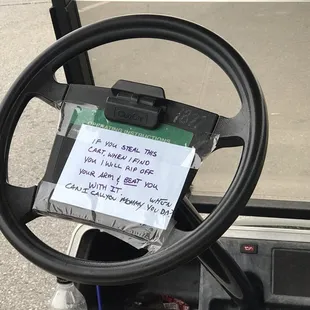 OPERATING INSTRUCTIONS
IF YOU STEAL THIS
CART, WHEN I FIND
YOU I WILL RIP OFF
YOUR ARM & BEAT YOU
WITH IT.
CAN I CALL YOU MOMMY YOU